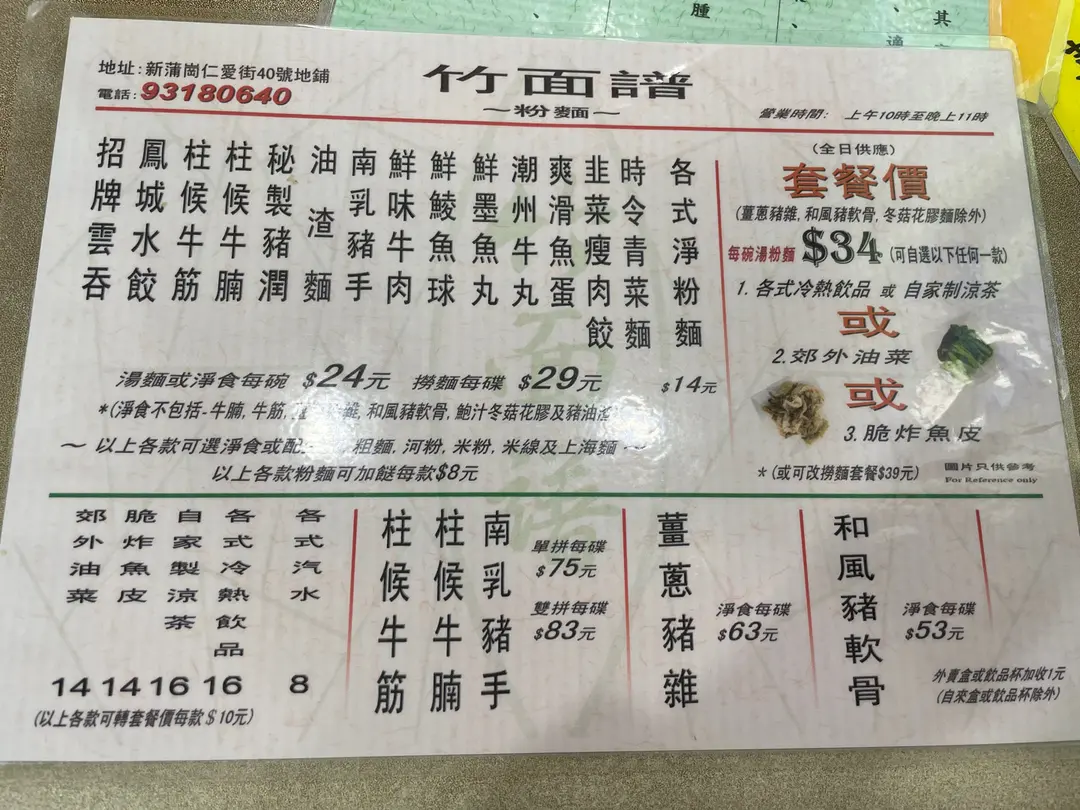 腫
其
適
地址:新蒲崗仁愛街40號地鋪
電話:93180640
竹面譜
～粉麵～
營業時間: 上午10時至晚上11時
招牌雲吞
鳳城水餃
柱候牛筋
柱候牛腩
秘製豬潤
油渣麵
南乳豬手
鮮味牛肉
鮮鯪魚球
鮮墨魚丸
潮州牛丸
爽滑魚蛋
韭菜瘦肉餃
時令青菜麵
各式淨粉麵
湯麵或淨食每碗 $24元 撈麵每碟 $29元
$14元
*(淨食不包括-牛腩,牛筋,
和風豬軟骨,鮑汁冬菇花膠及豬油渣
～ 以上各款可選淨食或配
粗麵,河粉,米粉,米線及上海麵 ～
以上各款粉麵可加餸每款$8元
(全日供應)
套餐價
(薑蔥豬雜,和風豬軟骨,冬菇花膠麵除外)
每碗湯粉麵 $34 (可自選以下任何一款)
1. 各式冷熱飲品 或 自家制涼茶
或
2.郊外油菜
或
3.脆炸魚皮
*(或可改撈麵套餐$39元)
圖片只供參考
For Reference only
郊外油菜 14
脆炸魚皮 14
自家製涼茶 16
各式冷熱飲品 16
各式汽水 8
(以上各款可轉套餐價每款$10元)
柱候牛筋
柱候牛腩
南乳豬手
單拼每碟
$75元
雙拼每碟
$83元
薑蔥豬雜
淨食每碟
$63元
和風豬軟骨
淨食每碟
$53元
外賣盒或飲品杯加收1元
(自來盒或飲品杯除外)